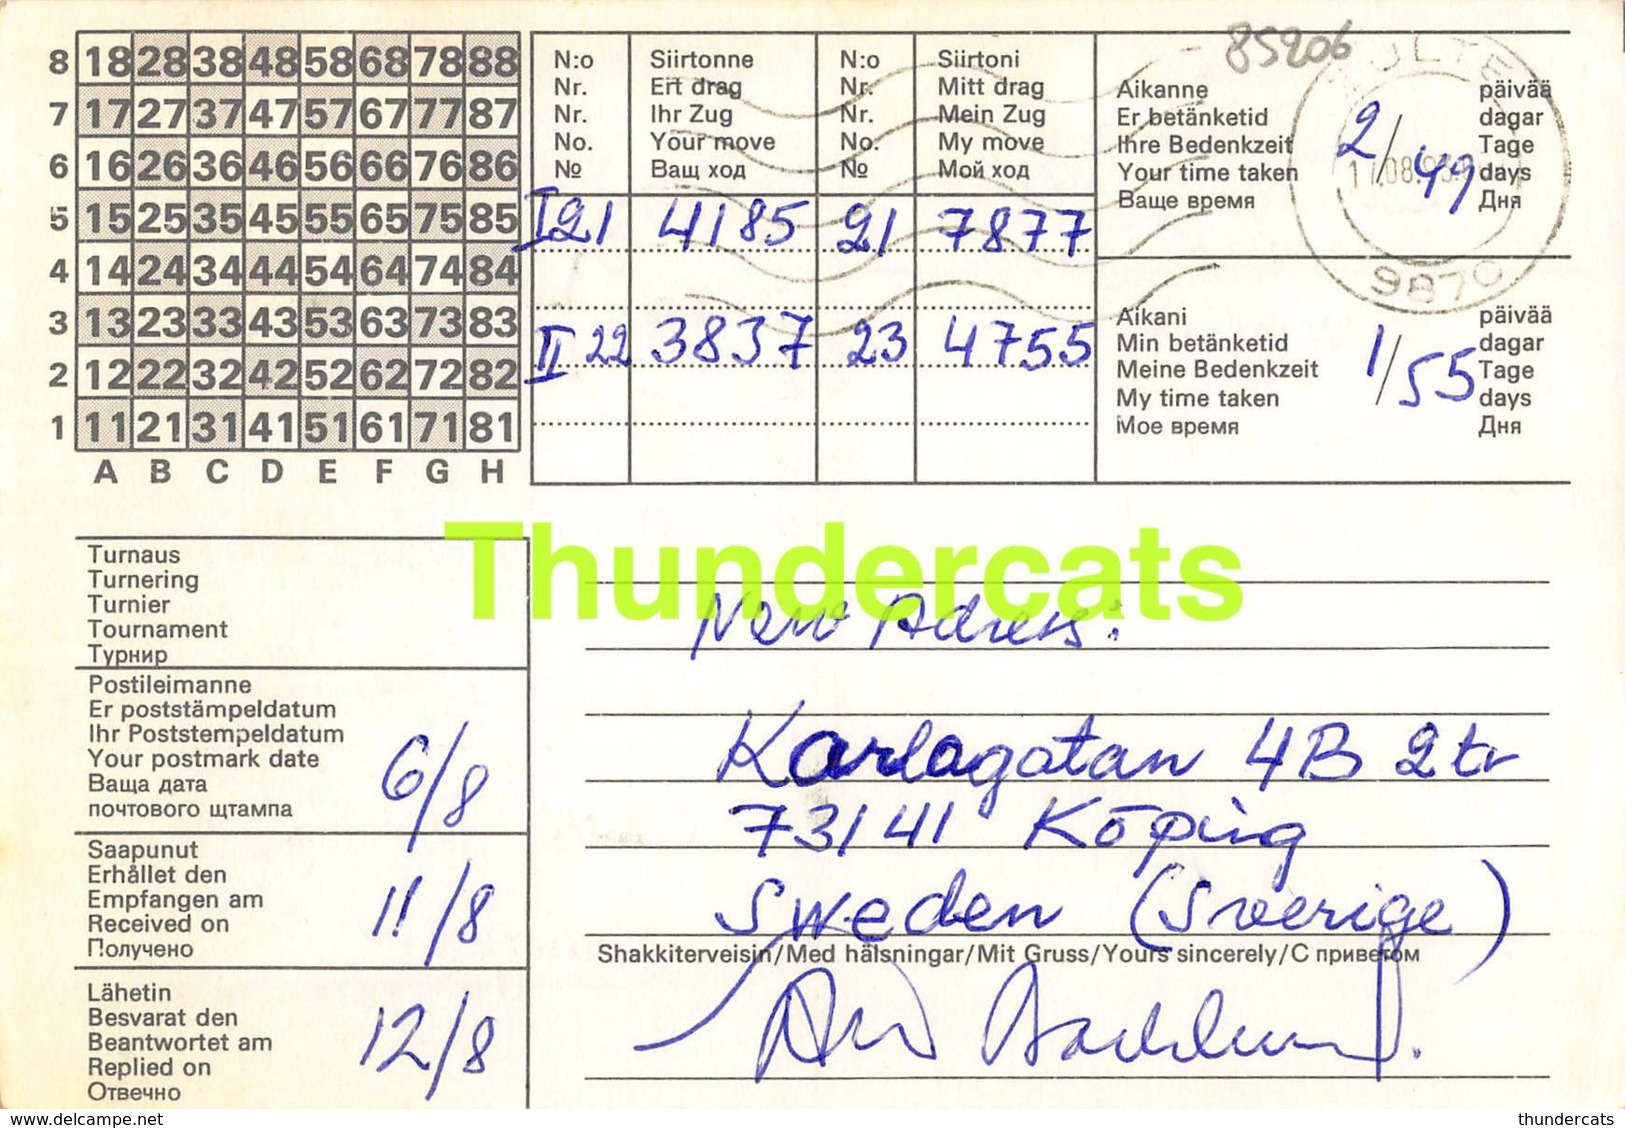 85206
8 18 28 38 48 58 68 78 88
7 17 27 37 47 57 67 77 87
6 16 26 36 46 56 66 76 86
5 15 25 35 45 55 65 75 85
4 14 24 34 44 54 64 74 84
3 13 23 33 43 53 63 73 83
2 12 22 32 42 52 62 72 82
1 11 21 31 41 51 61 71 81
A B C D E F G H
N:o Siirtonne N:o Siirtoni
Nr. Ert drag Nr. Mitt drag
Nr. Ihr Zug Nr. Mein Zug
No. Your move No. My move
№ Ваш ход № Мой ход
I 21 4185 21 7877
II 22 3837 23 4755
Aikanne päivää
Er betänketid dagar
Ihre Bedenkzeit 2/49 Tage
Your time taken days
Ваше время Дня
9870
Aikani päivää
Min betänketid dagar
Meine Bedenkzeit 1/55 Tage
My time taken days
Мое время Дня
Thundercats
Turnaus
Turnering
Turnier
Tournament
Турнир
Postileimanne
Er poststämpeldatum
Ihr Poststempeldatum
Your postmark date
Ваща дата
почтового щтампа
6/8
Saapunut
Erhållet den
Empfangen am
Received on
Получено
11/8
Lähetin
Besvarat den
Beantwortet am
Replied on
Отвечно
12/8
New Adress:
Karlagatan 4B 2 tr
73141 Köping
Sweden (Sverige)
Shakkiterveisin/Med hälsningar/Mit Gruss/Yours sincerely/С приветом
www.delcampe.net thundercats